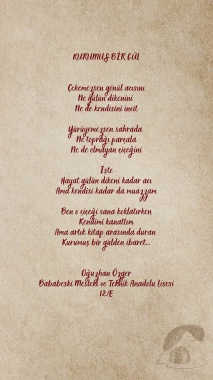 KURUMUŞ BİR GÜL
Çekemezsen gönül acısını
Ne gülün dikenini
Ne de kendisini incit
Yürüyemezsen sahrada
Ne toprağı parçala
Ne de olmayan çiçeğini
İşte
Hayat gülün dikeni kadar acı
Ama kendisi kadar da muazzam
Ben o çiçeği sana koklatırken
Kendimi kanattım
Ama artık kitap arasında duran
Kurumuş bir gülden ibaret...
Oğuzhan Özger
Babaeski Mesleki ve Teknik Anadolu Lisesi
12/E